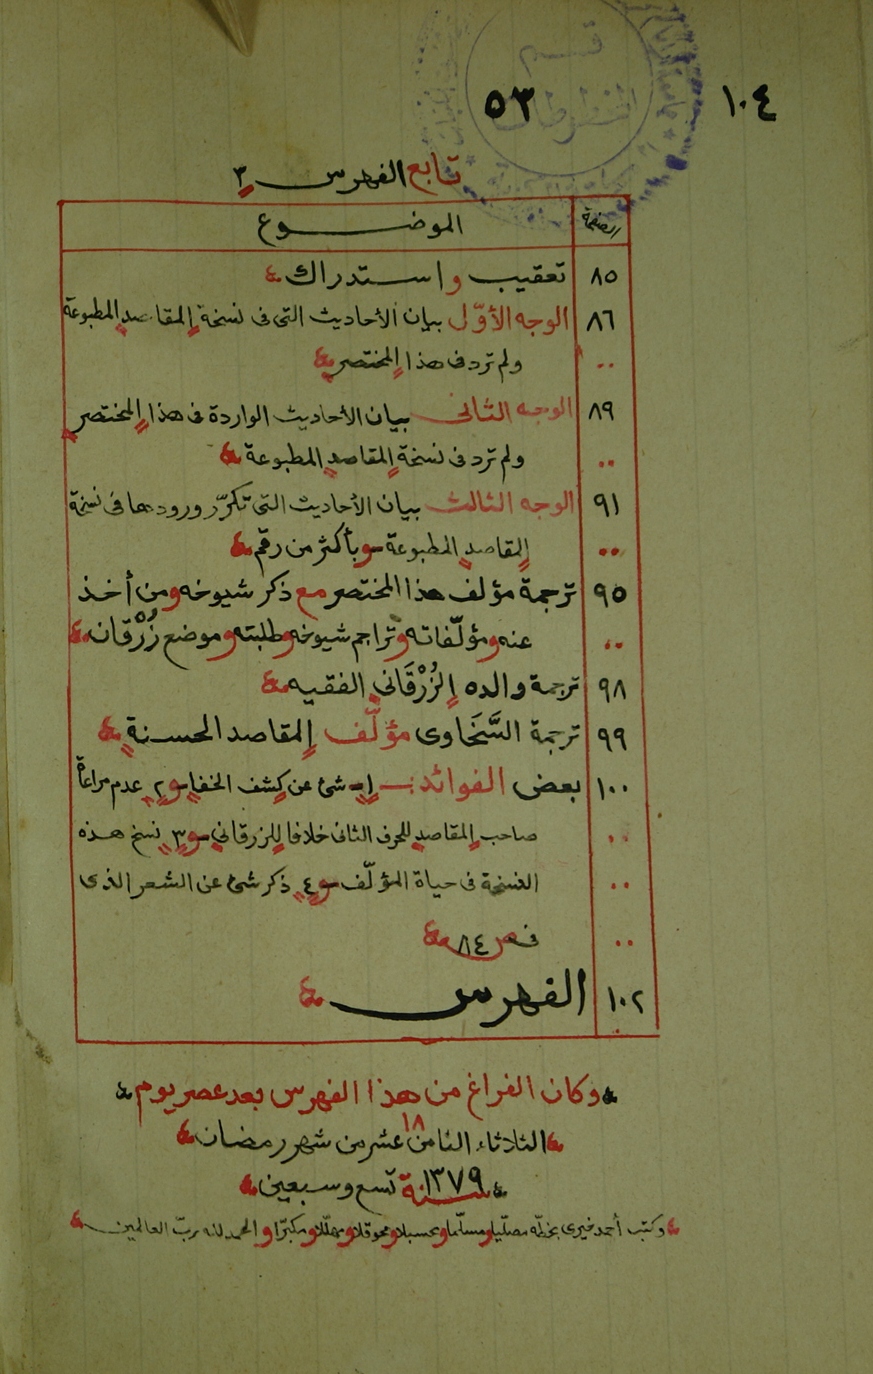 ١٠٤
٥٣
قسم
المخطوطات
تابع الفهرس ٣
الصفحة الموضوع
٨٥ تعقيب واستدراك
٨٦ الوجه الأوّل بيان الأحاديث التى فى نسخة المقاصد المطبوعة
.. ولم ترد فى هذا المختصر
٨٩ الوجه الثانى بيان الأحاديث الواردة فى هذا المختصر
.. ولم ترد فى نسخة المقاصد المطبوعة
٩١ الوجه الثالث بيان الأحاديث التى تكرّر ورودها فى نسخة
.. المقاصد المطبوعة وبأكثر من رقم
٩٥ ترجمة مؤلف هذا المختصر مع ذكر شيوخه ومن أخذ
.. عنه ومؤلّفاته وتراجم شيوخه وطلبته وموضع زُرْقَان
٩٨ ترجمة والده الزُرْقَانى الفقيه
٩٩ ترجمة السَّخَاوى مؤلّف المقاصد الحسنة
١٠٠ بعض الفوائد :- ١- شئ عن كشف الخفا و٢ عدم مراعاة
.. صاحب المقاصد للحرف الثانى خلافا للزرقانى و٣ نسخ هذه
.. النسخة فى حياة المؤلّف و٤ ذكر شئ عن الشعر الذى
.. فى ص ٨٤
١٠٢ الفهرس
وكان الفراغ من هذا الفهرس بعد عصر يوم
الثلاثاء الثامن ١٨ عشر من شهر رمضان
سنة ١٣٧٩ تسع وسبعين
وكتب أحمد خيرى بخطّه مصلّيا ومسلّما ومحسبلا ومحوقلا ومهلّلا ومكبّرا والحمد لله ربّ العالمين